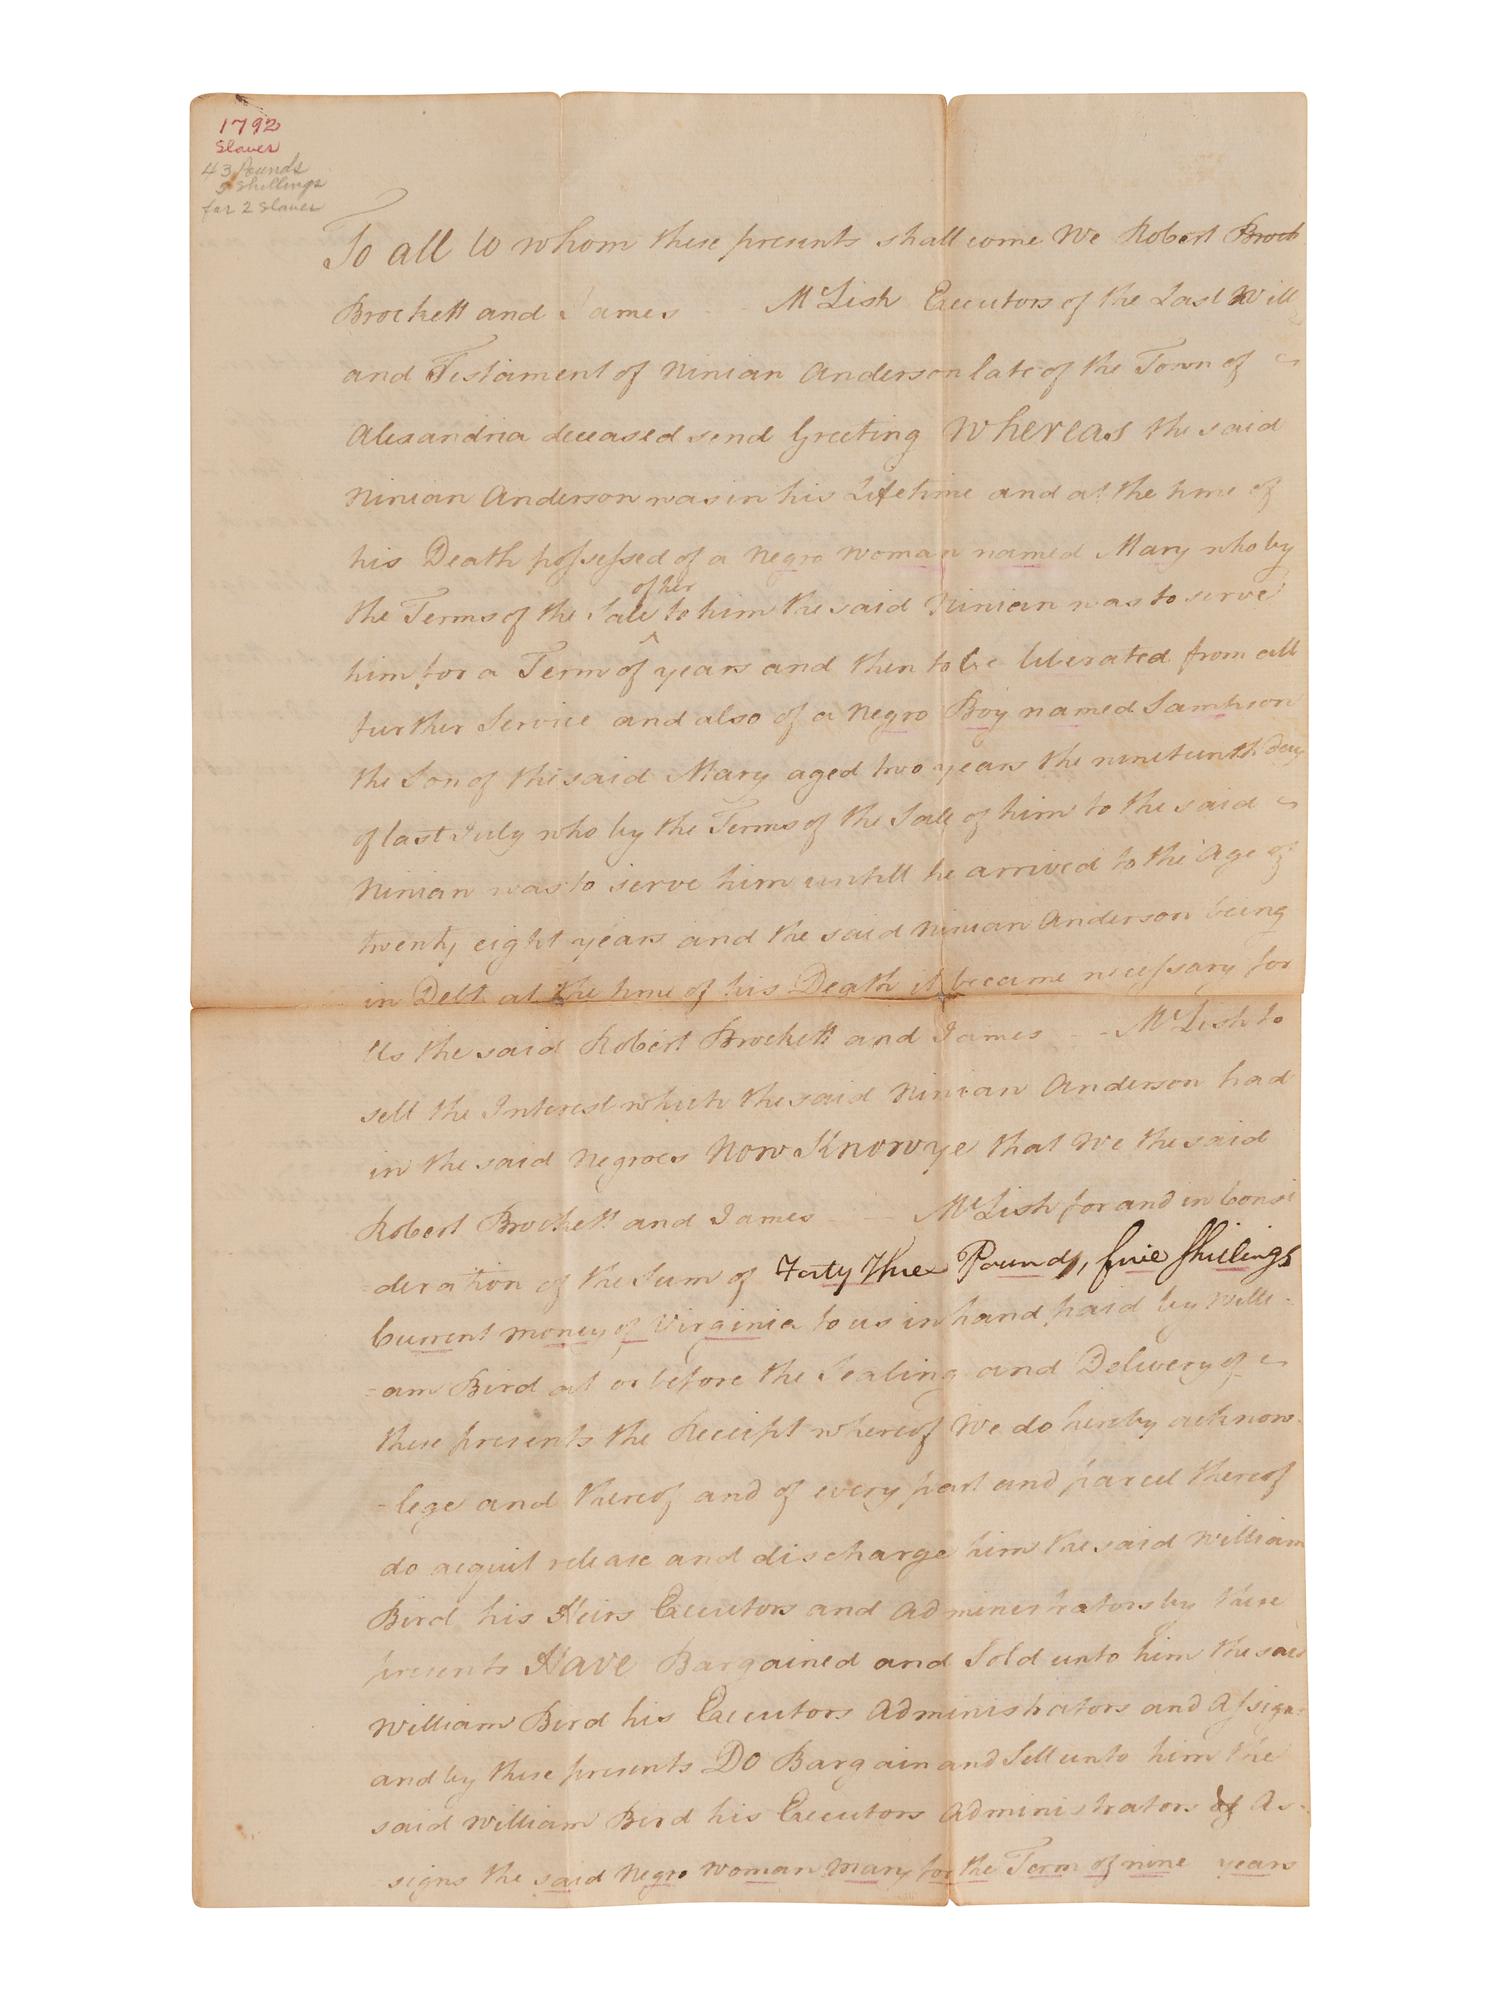 1792
Slaves
43 Pounds
5 Shillings
for 2 Slaves
To all to whom these presents shall come We Robert Brock
Brockett and James - - McLish Executors of the Last Will
and Testament of Ninian Anderson late of the Town of
Alexandria deceased send Greeting Whereas the said
Ninian Anderson was in his Lifetime and at the time of
his Death possessed of a Negro Woman named Mary who by
of her
the Terms of the Sale ^ to him the said Ninian was to serve
him for a Term of years and then to be liberated from all
further Service and also of a Negro Boy named Sampson
the Son of the said Mary aged two years the nineteenth Day
of last July who by the Terms of the Sale of him to the said
Ninian was to serve him untill he arrived to the Age of
twenty eight years and the said Ninian Anderson being
in Debt at the time of his Death it became necessary for
Us the said Robert Brockett and James - - McLish to
sell the Interest which the said Ninian Anderson had
in the said Negroes Now Know ye that We the said
Robert Brockett and James - - McLish for and in Consi
=deration of the Sum of Forty three Pounds, five Shillings
Current money of Virginia to us in hand paid by Willi-
=am Bird at or before the Sealing and Delivery of
these presents the Receipt whereof We do hereby acknow-
-lege and thereof and of every part and parcel thereof
do acquit release and discharge him the said William
Bird his Heirs Executors and Administrators by these
presents Have Bargained and Sold unto him the said
William Bird his Executors Administrators and Assigns
and by these presents Do Bargain and Sell unto him the
said William Bird his Executors Administrators As-
signs the said Negro Woman Mary for the Term of nine years